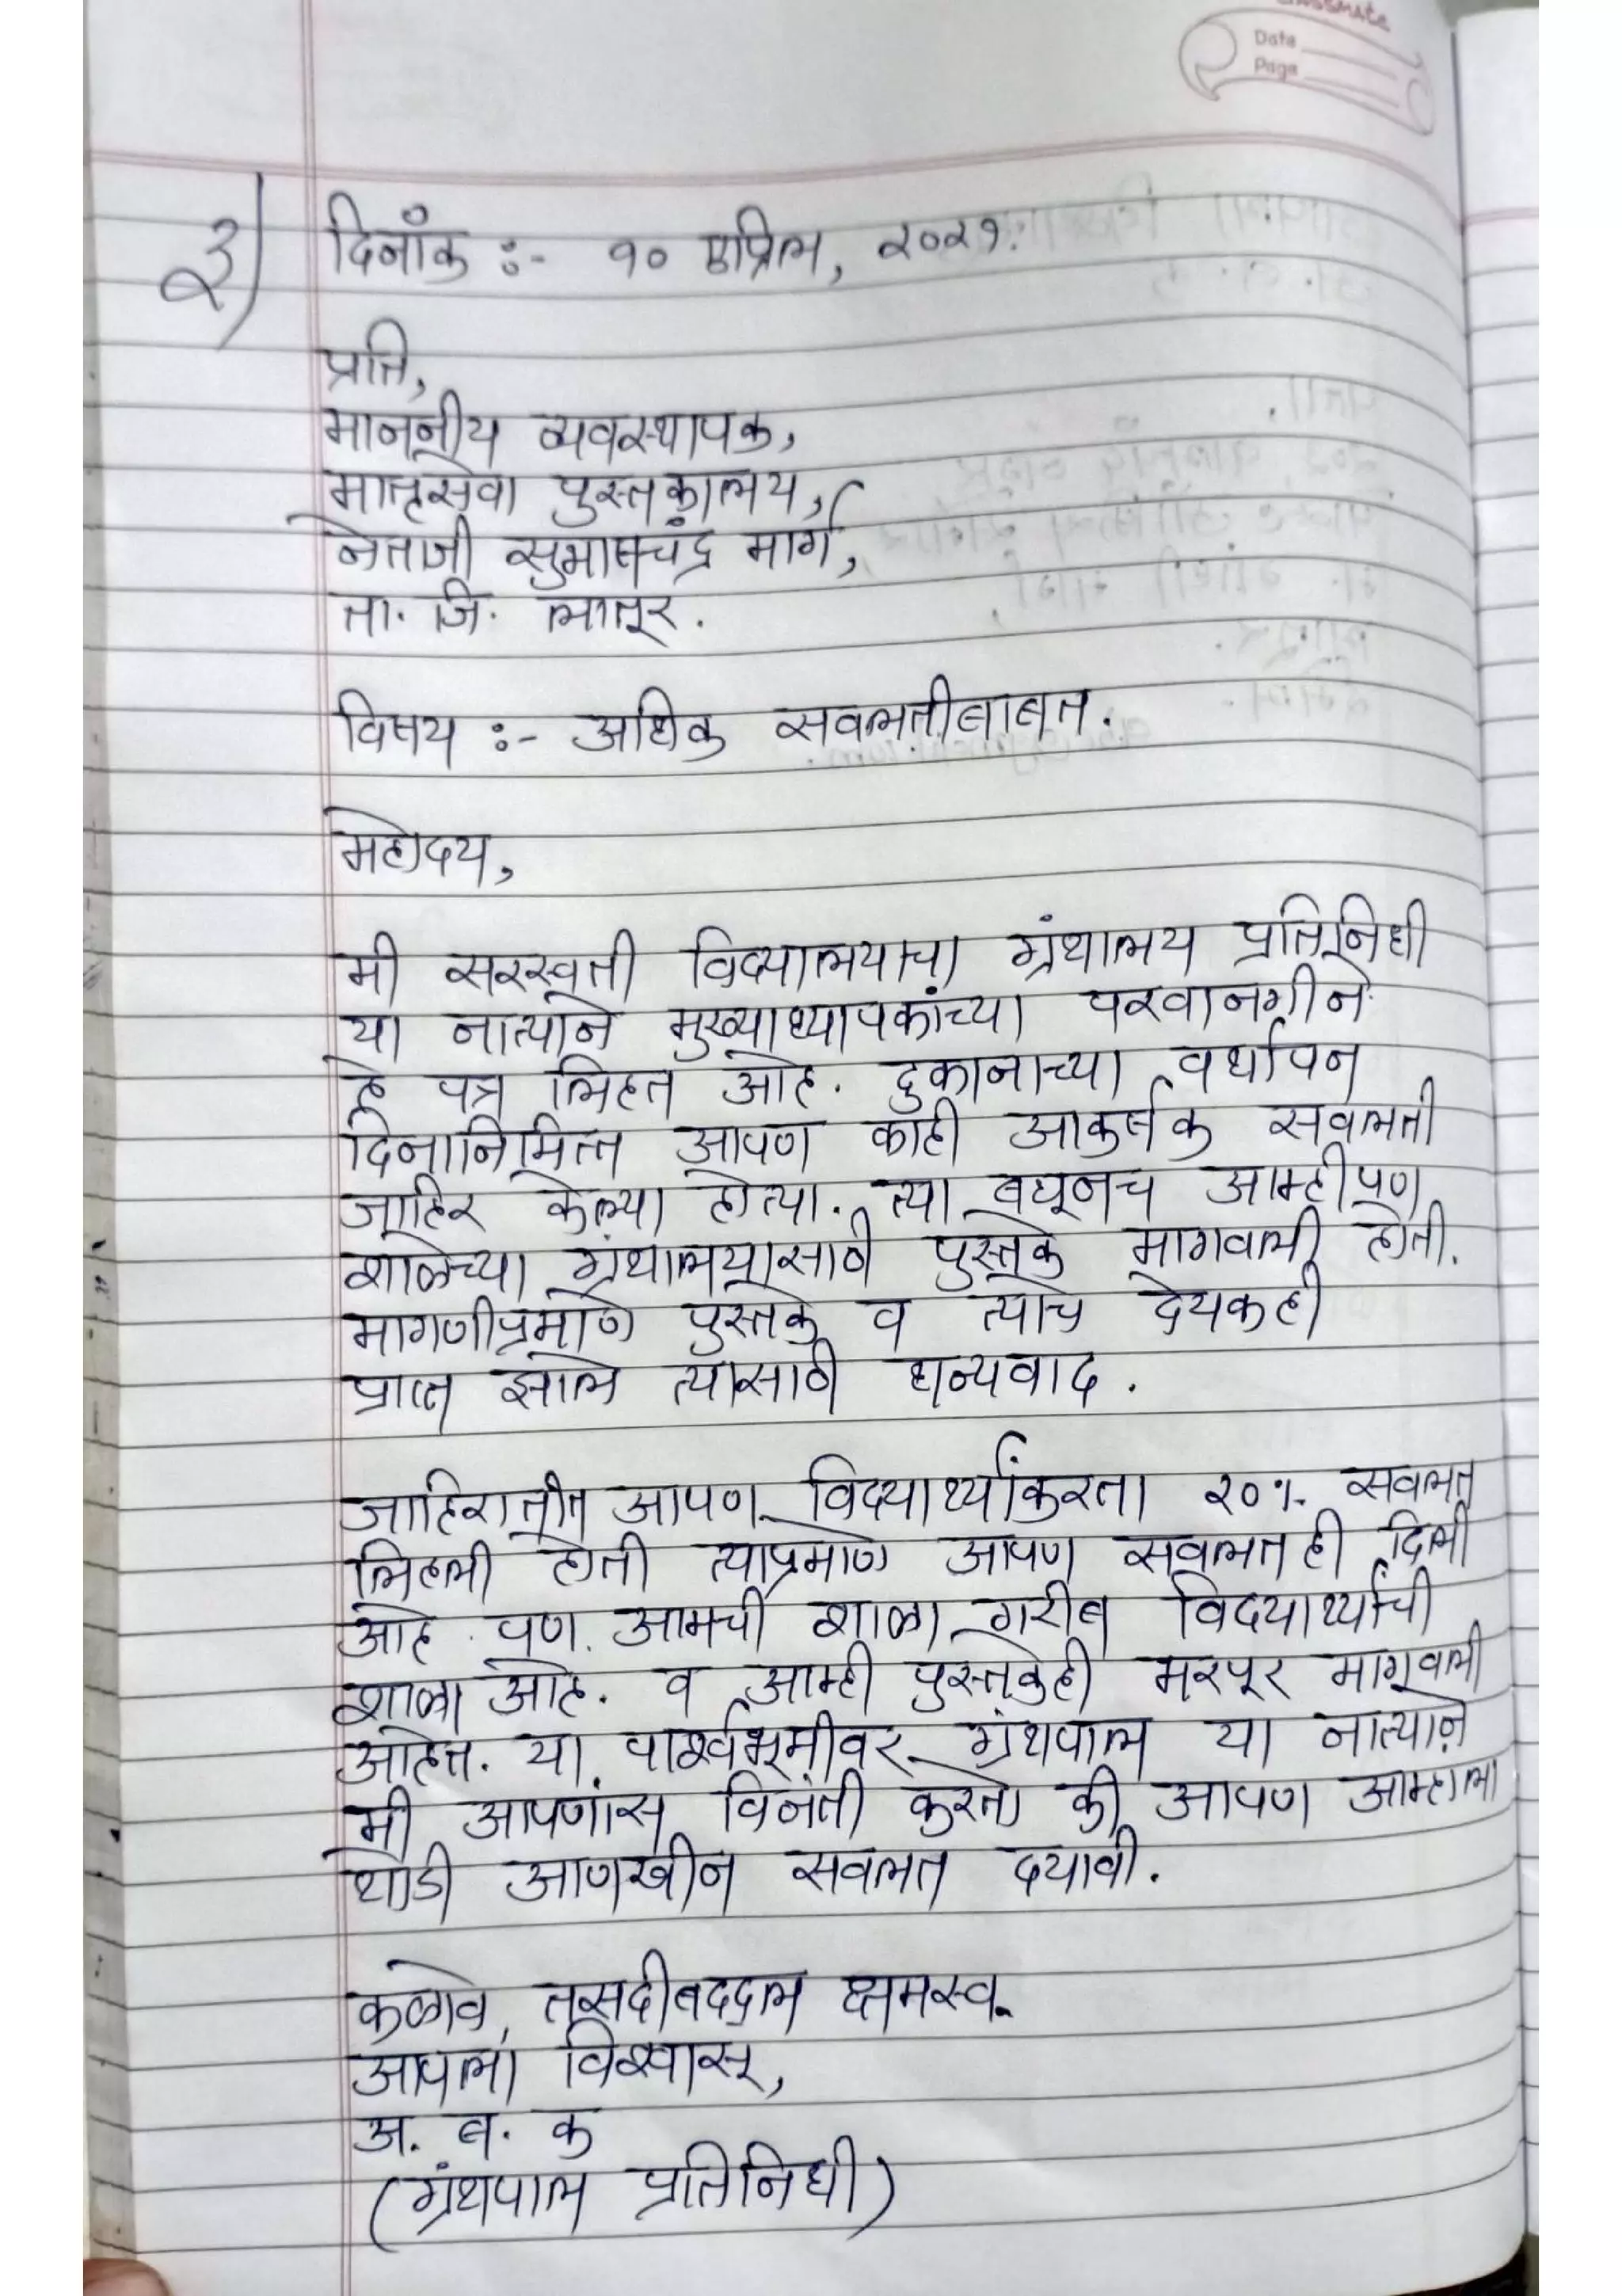 classmate
Date
Page
२) दिनाँक :- १० एप्रिल, २०२१.
प्रति,
माननीय व्यवस्थापक,
मातृसेवा पुस्तकालय,
नेताजी सुभाषचंद्र मार्ग,
ता. जि. लातूर.
विषय :- अधिक सवलतीबाबत.
महोदय,
मी सरस्वती विद्यालयाचा ग्रंथालय प्रतिनिधी
या नात्याने मुख्याध्यापकांच्या परवानगीने
हे पत्र लिहत आहे. दुकानाच्या वर्धापन
दिनानिमित्त आपण काही आकर्षक सवलती
जाहिर केल्या होत्या. त्या बघूनच आम्हीपण
शाळेच्या ग्रंथालयासाठी पुस्तके मागवली होती.
मागणीप्रमाणे पुस्तके व त्याचे देयकही
प्राप्त झाले त्यासाठी धन्यवाद.
जाहिरातीत आपण विद्यार्थ्यांकरता २०% सवलत
लिहली होती त्याप्रमाणे आपण सवलतही दिली
आहे. पण. आमची शाळा गरीब विदयार्थ्यांची
शाळा आहे. व आम्ही पुस्तकेही भरपूर मागवली
आहेत. या पार्श्वभूमीवर ग्रंथपाल या नात्याने
मी आपणांस विनंती करतो की आपण आम्हाला
थोडी आणखीन सवलत दयावी.
कळावे, तसदीबददल क्षमस्व.
आपला विश्वासू,
अ. ब. क
(ग्रंथपाल प्रतिनिधी)